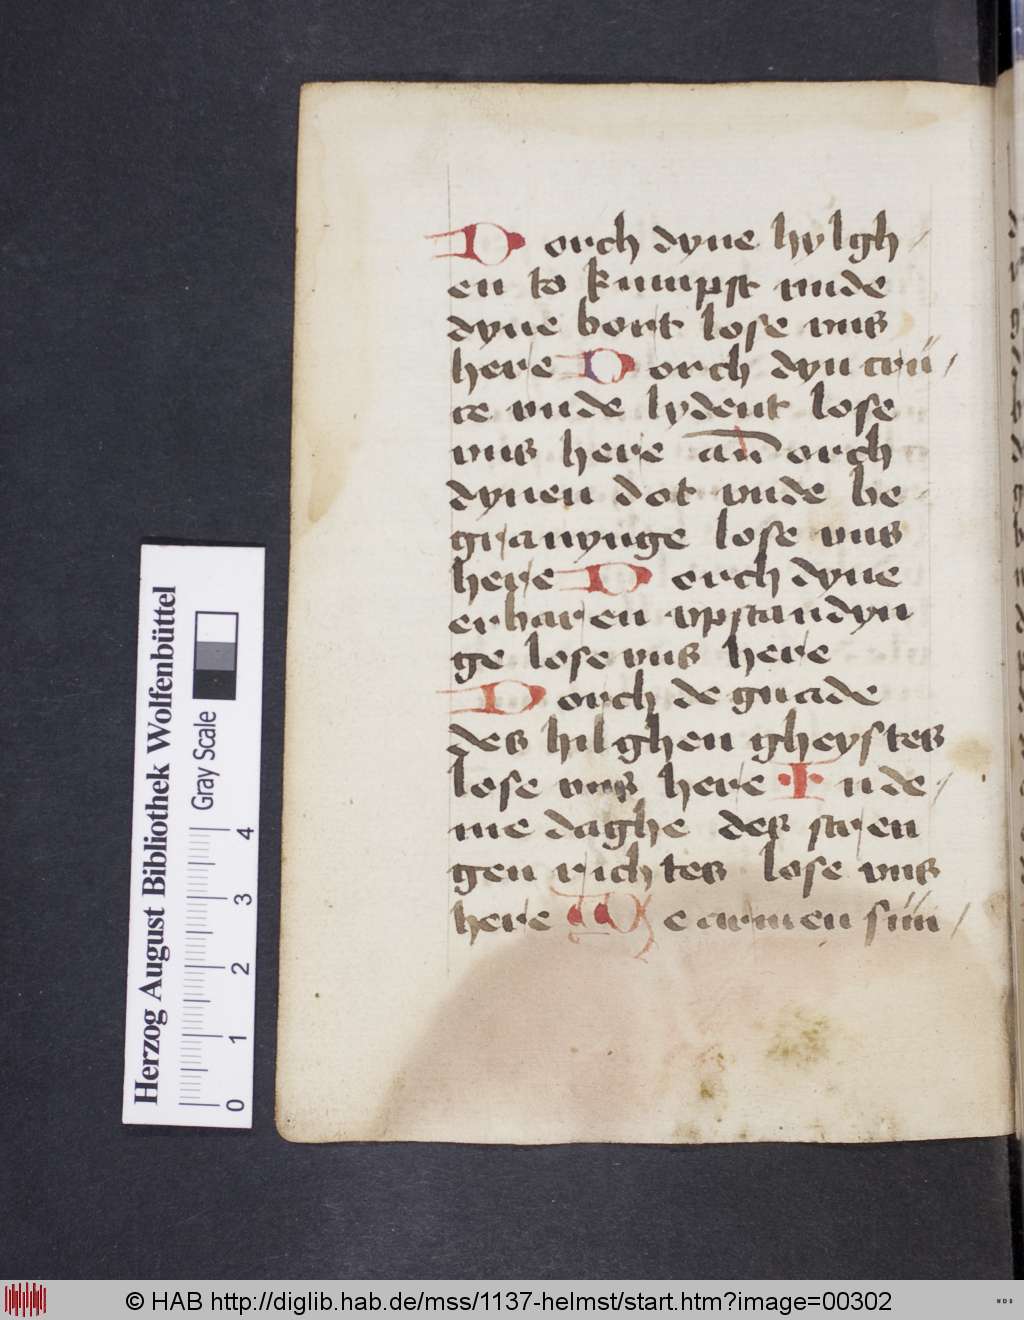 Dorch dyne hylgh
en to kumpst vnde
dyne bort lose vns
here Dorch dyn crü
ce vnde lydent lose
vns here an̄ dorch
dynen dot vnde be
grauynge lose vns
here Dorch dyne
erbaren vpstandyn
ge lose vns here
Dorch de gnade
des hilghen gheystes
lose vns here In de
me daghe des stren
gen richtes lose vns
here We armen sün
Herzog August Bibliothek Wolfenbüttel
Gray Scale
0 1 2 3 4
© HAB http://diglib.hab.de/mss/1137-helmst/start.htm?image=00302